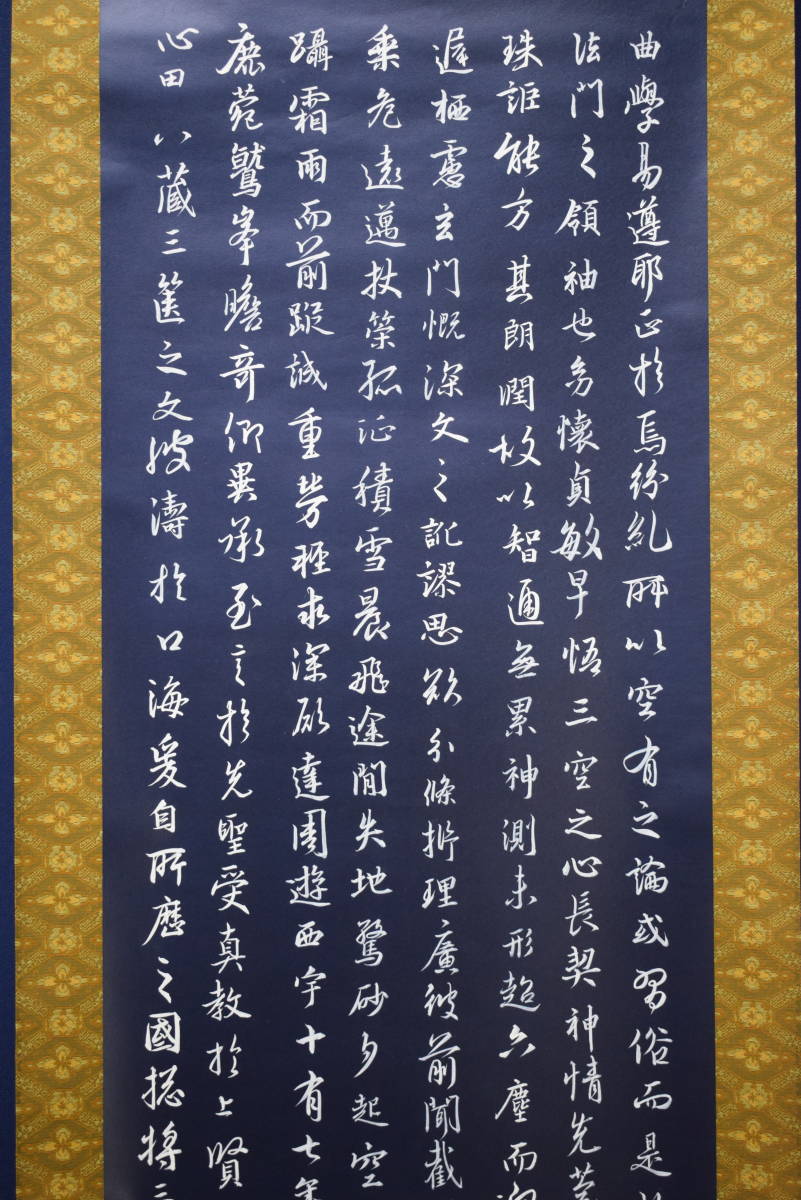 曲學易遵耶正於焉紛糺所以空有之論或習俗而是
法門之領袖也幼懷貞敏早悟三空之心長契神情先苞
珠詎能方其朗潤故以智通無累神測未形超六塵而迥
遲栖慮玄門慨深文之訛謬思欲分條析理廣彼前聞截
乘危遠邁杖策孤征積雪晨飛途閒失地驚砂夕起空
躡霜雨而前蹤誠重勞輕求深願達周遊西宇十有七年
鹿菀鷲峯瞻奇仰異承至言於先聖受真教於上賢
心田八藏三篋之文波濤於口海爰自所歷之國總將三